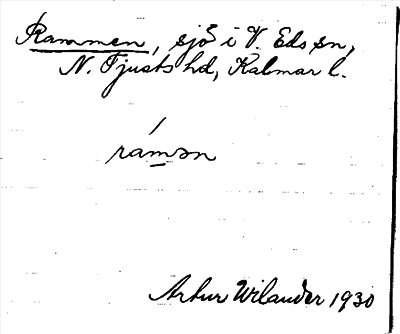 Rammen, sjö i V. Eds sn,
N. Tjusts hd, Kalmar l.
rámən
Artur Wilander 1930